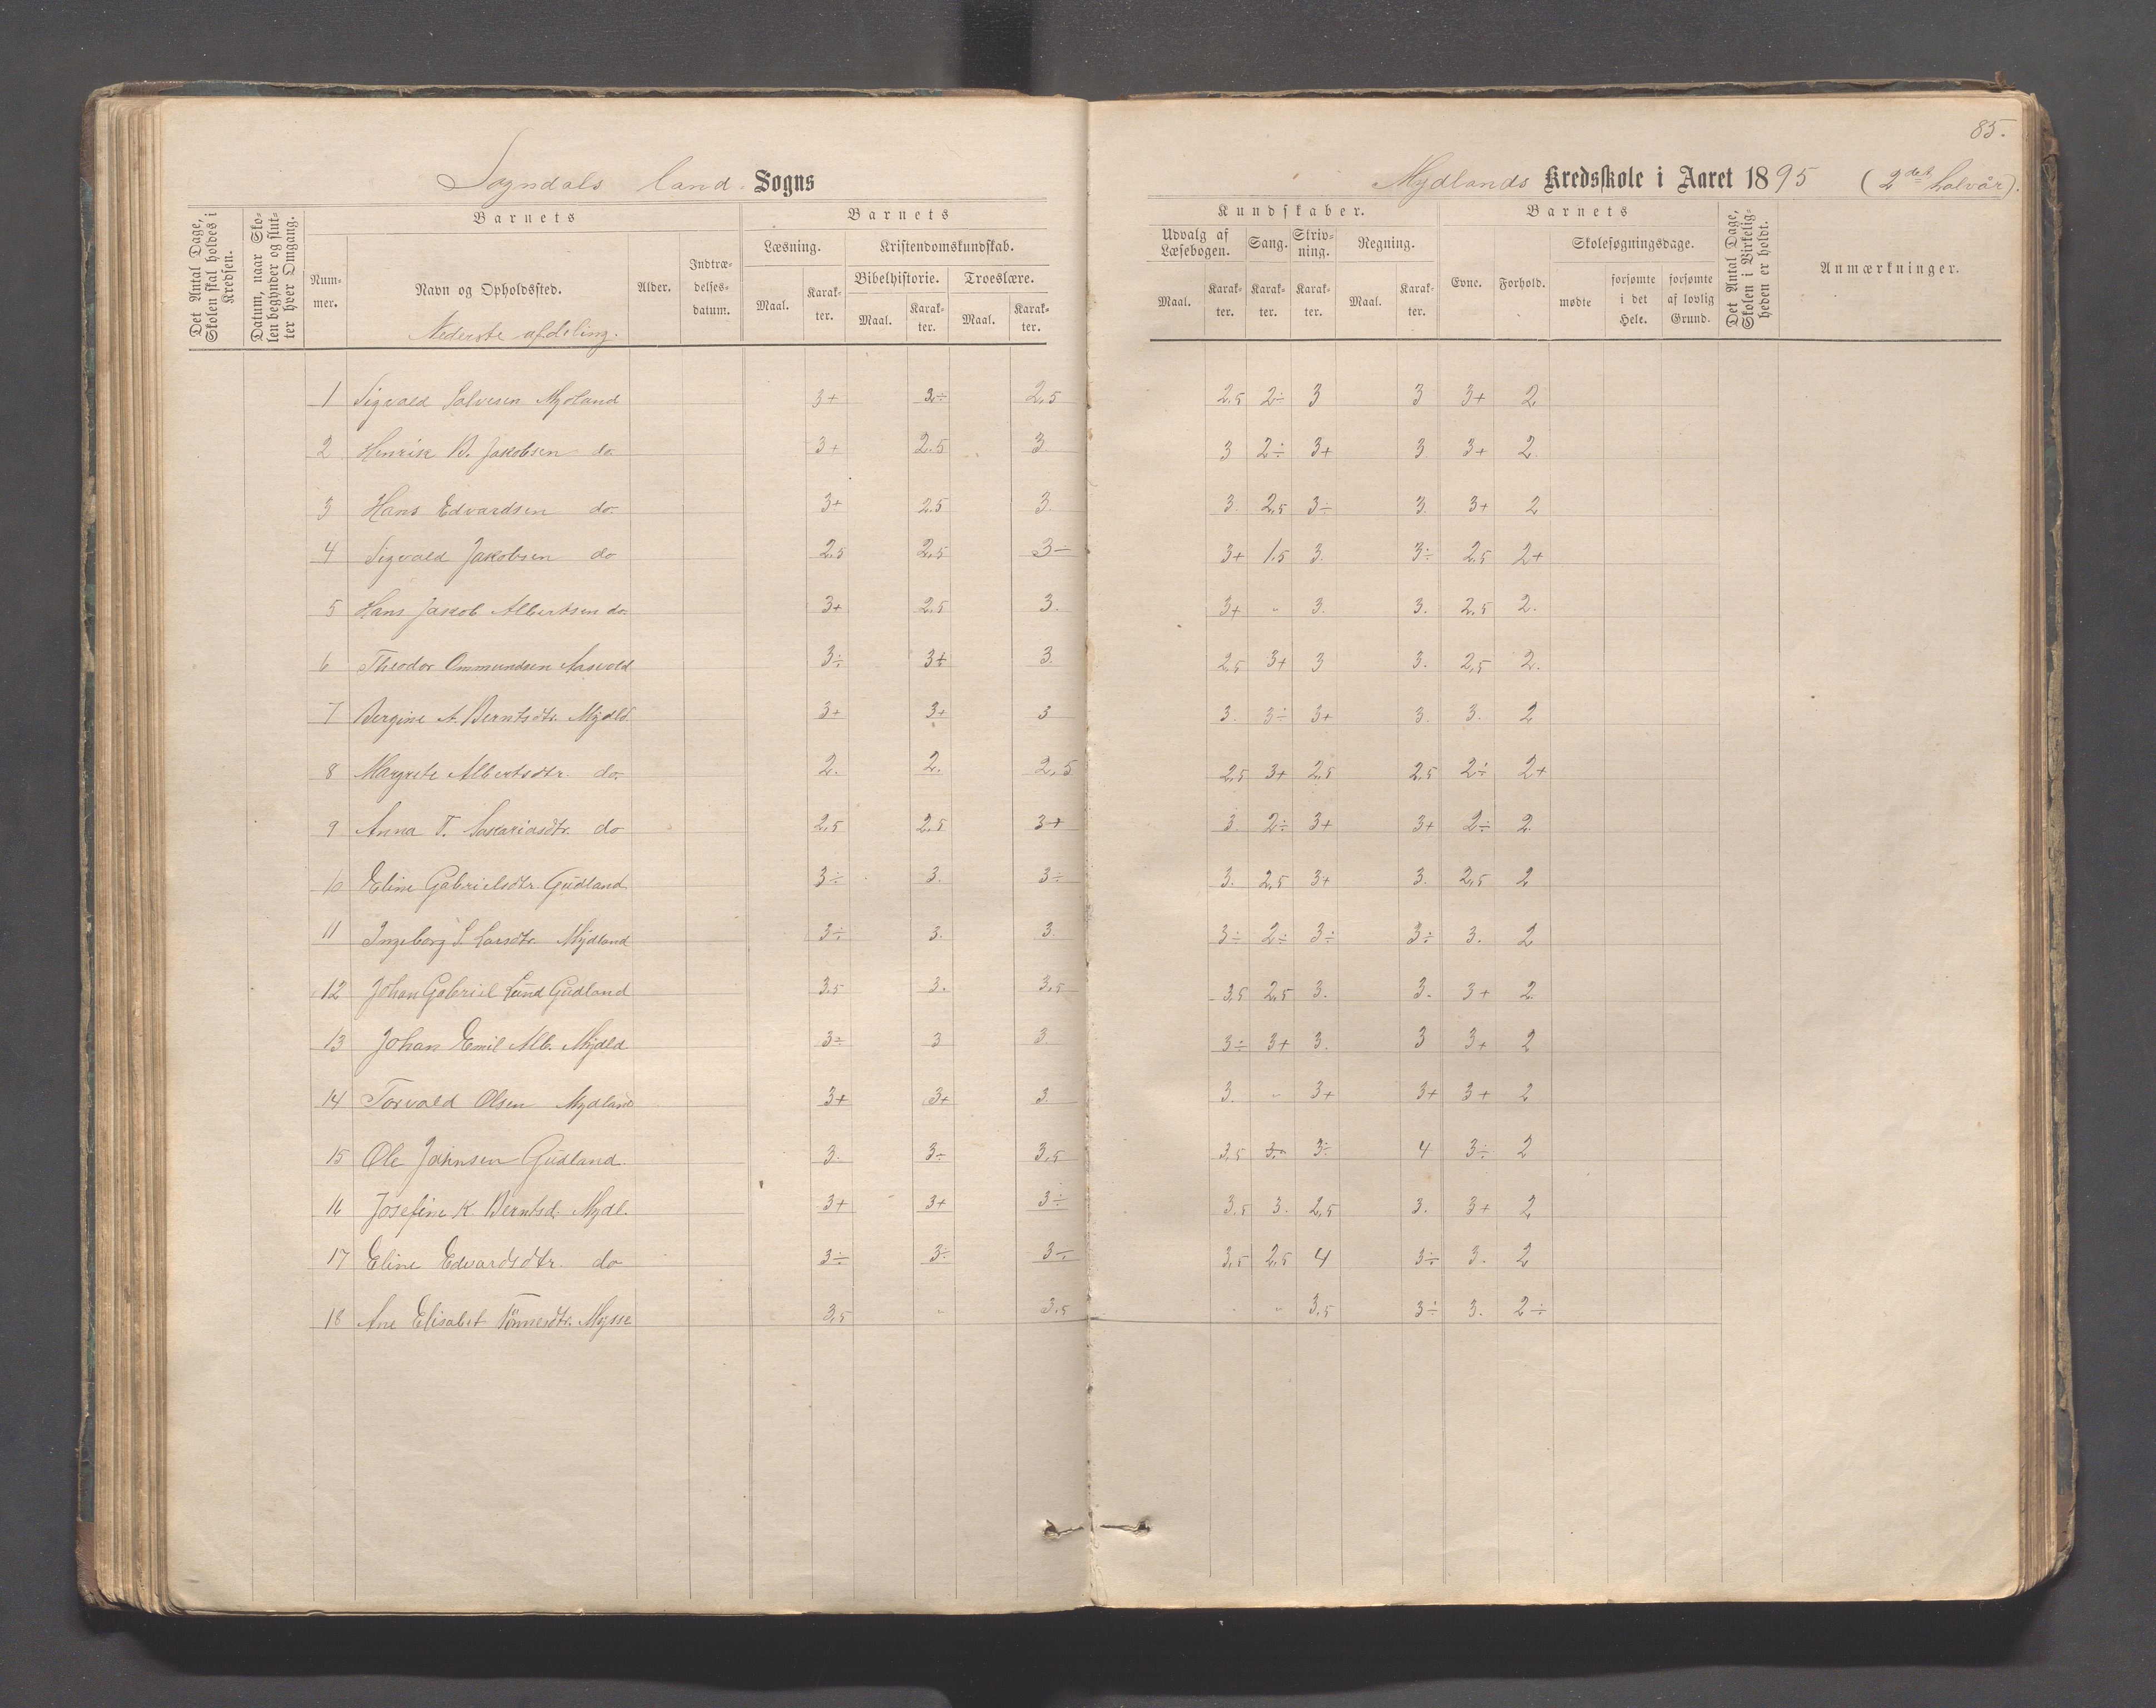 85.
Sogndals land. Sogns
Mydlands Kredsskole i Aaret 1895 (2det halvår).
Det Antal Dage, Skolen skal holdes i Kredsen.
Datum, naar Skolen begynder og slutter hver Omgang.
Barnets
Nummer.
Navn og Opholdssted.
Nederste afdeling.
Alder.
Indtrædelsesdatum.
Barnets
Læsning.
Maal.
Karakter.
Kristendomskundskab.
Bibelhistorie.
Maal.
Karakter.
Troeslære.
Maal.
Karakter.
Kundskaber.
Udvalg af Læsebogen.
Maal.
Karakter.
Sang.
Karakter.
Skrivning.
Karakter.
Regning.
Maal.
Karakter.
Barnets
Evne.
Forhold.
Skolesøgningsdage.
mødte
forsømte i det Hele.
forsømte af lovlig Grund.
Det Antal Dage, Skolen i Virkeligheden er holdt.
Anmærkninger.
1 Sigvald Salvesen Mydland 3+ 3÷ 2,5 2,5 2÷ 3 3 3+ 2
2 Henrik B. Jakobsen do. 3+ 2.5 3 3 2÷ 3+ 3 3+ 2.
3 Hans Edvardsen do. 3+ 2.5 3. 3. 2,5 3÷ 3. 3+ 2
4 Sigvald Jakobsen do 2,5 2,5 3÷ 3+ 1.5 3. 3÷ 2,5 2+
5 Hans Jakob Albertsen do. 3+ 2,5 3. 3+ " 3. 3. 2,5 2.
6 Theodor Ommundsen Aasvold 3÷ 3+ 3. 2,5 3+ 3 3. 2,5 2.
7 Bergine A. Berntsdtr. Mydld. 3+ 3+ 3 3. 3÷ 3+ 3. 3. 2
8 Margrete Albertsdtr. do. 2. 2. 2,5 2,5 3+ 2,5 2,5 2÷ 2+
9 Anna T. Sakariasdtr. do 2,5 2,5 3+ 3. 2÷ 3+ 3+ 2÷ 2.
10 Eline Gabrielsdtr Gudland 3÷ 3. 3÷ 3. 2,5 3+ 3. 2,5 2
11 Ingeborg S. Larsdtr. Mydland 3÷ 3. 3. 3÷ 2÷ 3÷ 3÷ 3. 2
12 Johan Gabriel Lund Gudland 3,5 3. 3,5 3,5 2,5 3. 3. 3+ 2.
13 Johan Emil Alb. Mydld 3÷ 3 3 3÷ 3+ 3. 3 3+ 2
14 Torvald Olsen Mydland 3+ 3+ 3. 3. " 3+ 3+ 3+ 2
15 Ole Johnsen Gudland. 3. 3÷ 3,5 3,5 3÷ 3÷ 4 3÷ 2
16 Josefine K Berntsd. Mydl. 3+ 3+ 3÷ 3,5 3. 2,5 3. 3+ 2
17 Eline Edvardsdtr. do 3÷ 3÷ 3÷ 3,5 2,5 4 3÷ 3. 2
18 Ane Elisabet Tönnesdtr. Mysse 3,5 " 3,5 " " 3,5 3÷ 3. 2÷